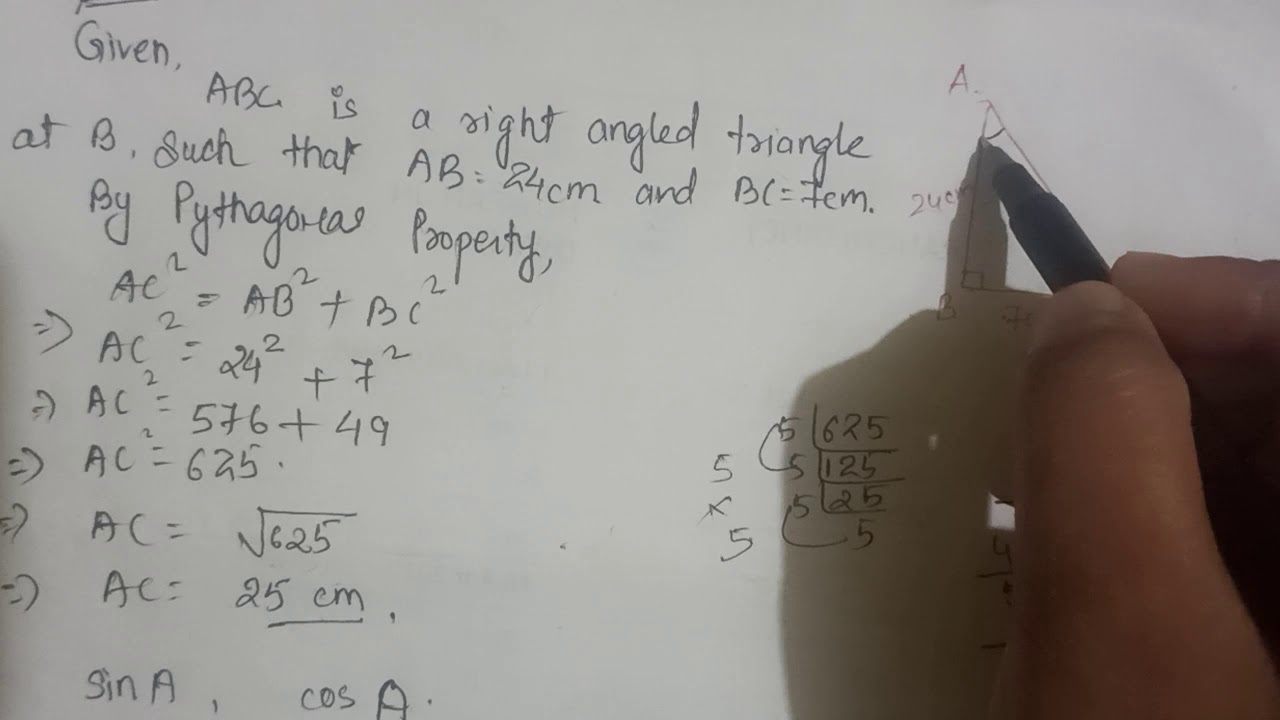 Given,
ABC is a right angled triangle
at B, Such that AB = 24cm and BC = 7cm.
By Pythagoreas Property,
AC² = AB² + BC²
=) AC² = 24² + 7²
=) AC² = 576 + 49
=) AC² = 625.
=) AC = √625
=) AC = 25 cm.
sin A, cos A.
A
24cm
B
5 625
5 125
5 25
5
5
×
5
4